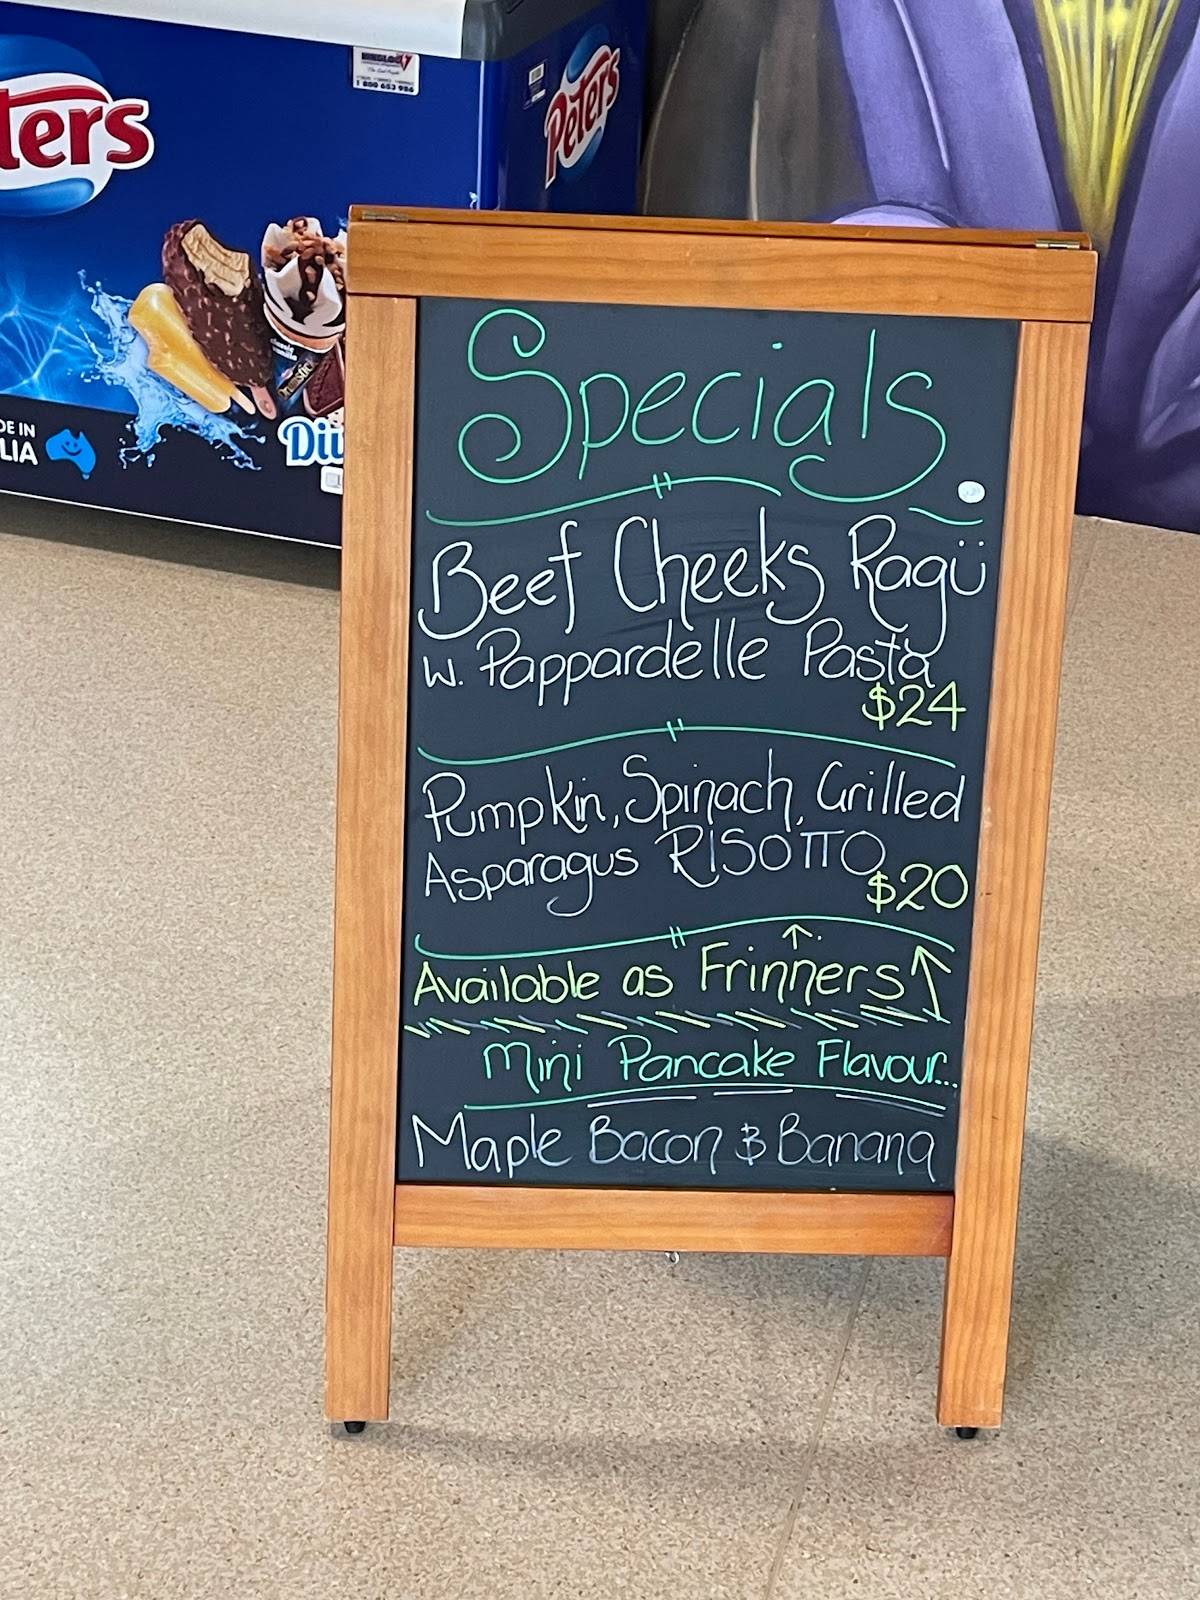 ters
Peters
1 800 653 986
DE IN
LIA
classic
vanilla
Drumstick
Specials.
Beef Cheeks Ragü
w. Pappardelle Pasta
$24
Pumpkin, Spinach, Grilled
Asparagus RISOTTO
$20
Available as Frinners
Mini Pancake Flavour...
Maple Bacon & Banana